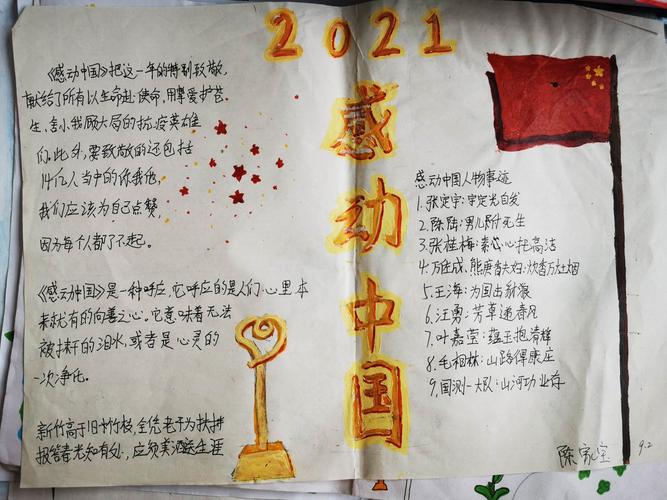 2021
感动中国
《感动中国》把这一年的特别致敬,
献给了所有以生命赴使命,用挚爱护苍
生,舍小我顾大局的抗疫英雄
们。此外,要致敬的还包括
14亿人当中的你我他,
我们应该为自己点赞,
因为每个人都了不起。
《感动中国》是一种呼应,它呼应的是人们心里本
来就有的向善之心。它意味着无法
被抹干的泪水,或者是心灵的
一次净化。
新竹高于旧竹枝,全凭老干为扶持
报答春光知有处,应须美酒送生涯
感动中国人物事迹
1.张定宇:宇定光自发
2.陈陆:男儿附死生
3.张桂梅:素心心托高洁
4.万佐成、熊庚香夫妇:炊香万灶烟
5.王海:为国击新浪
6.汪勇:芳草递春风
7.叶嘉莹:蕴玉抱清辉
8.毛相林:山路得康庄
9.国测一大队:山河功业存
陈家宝 9.2